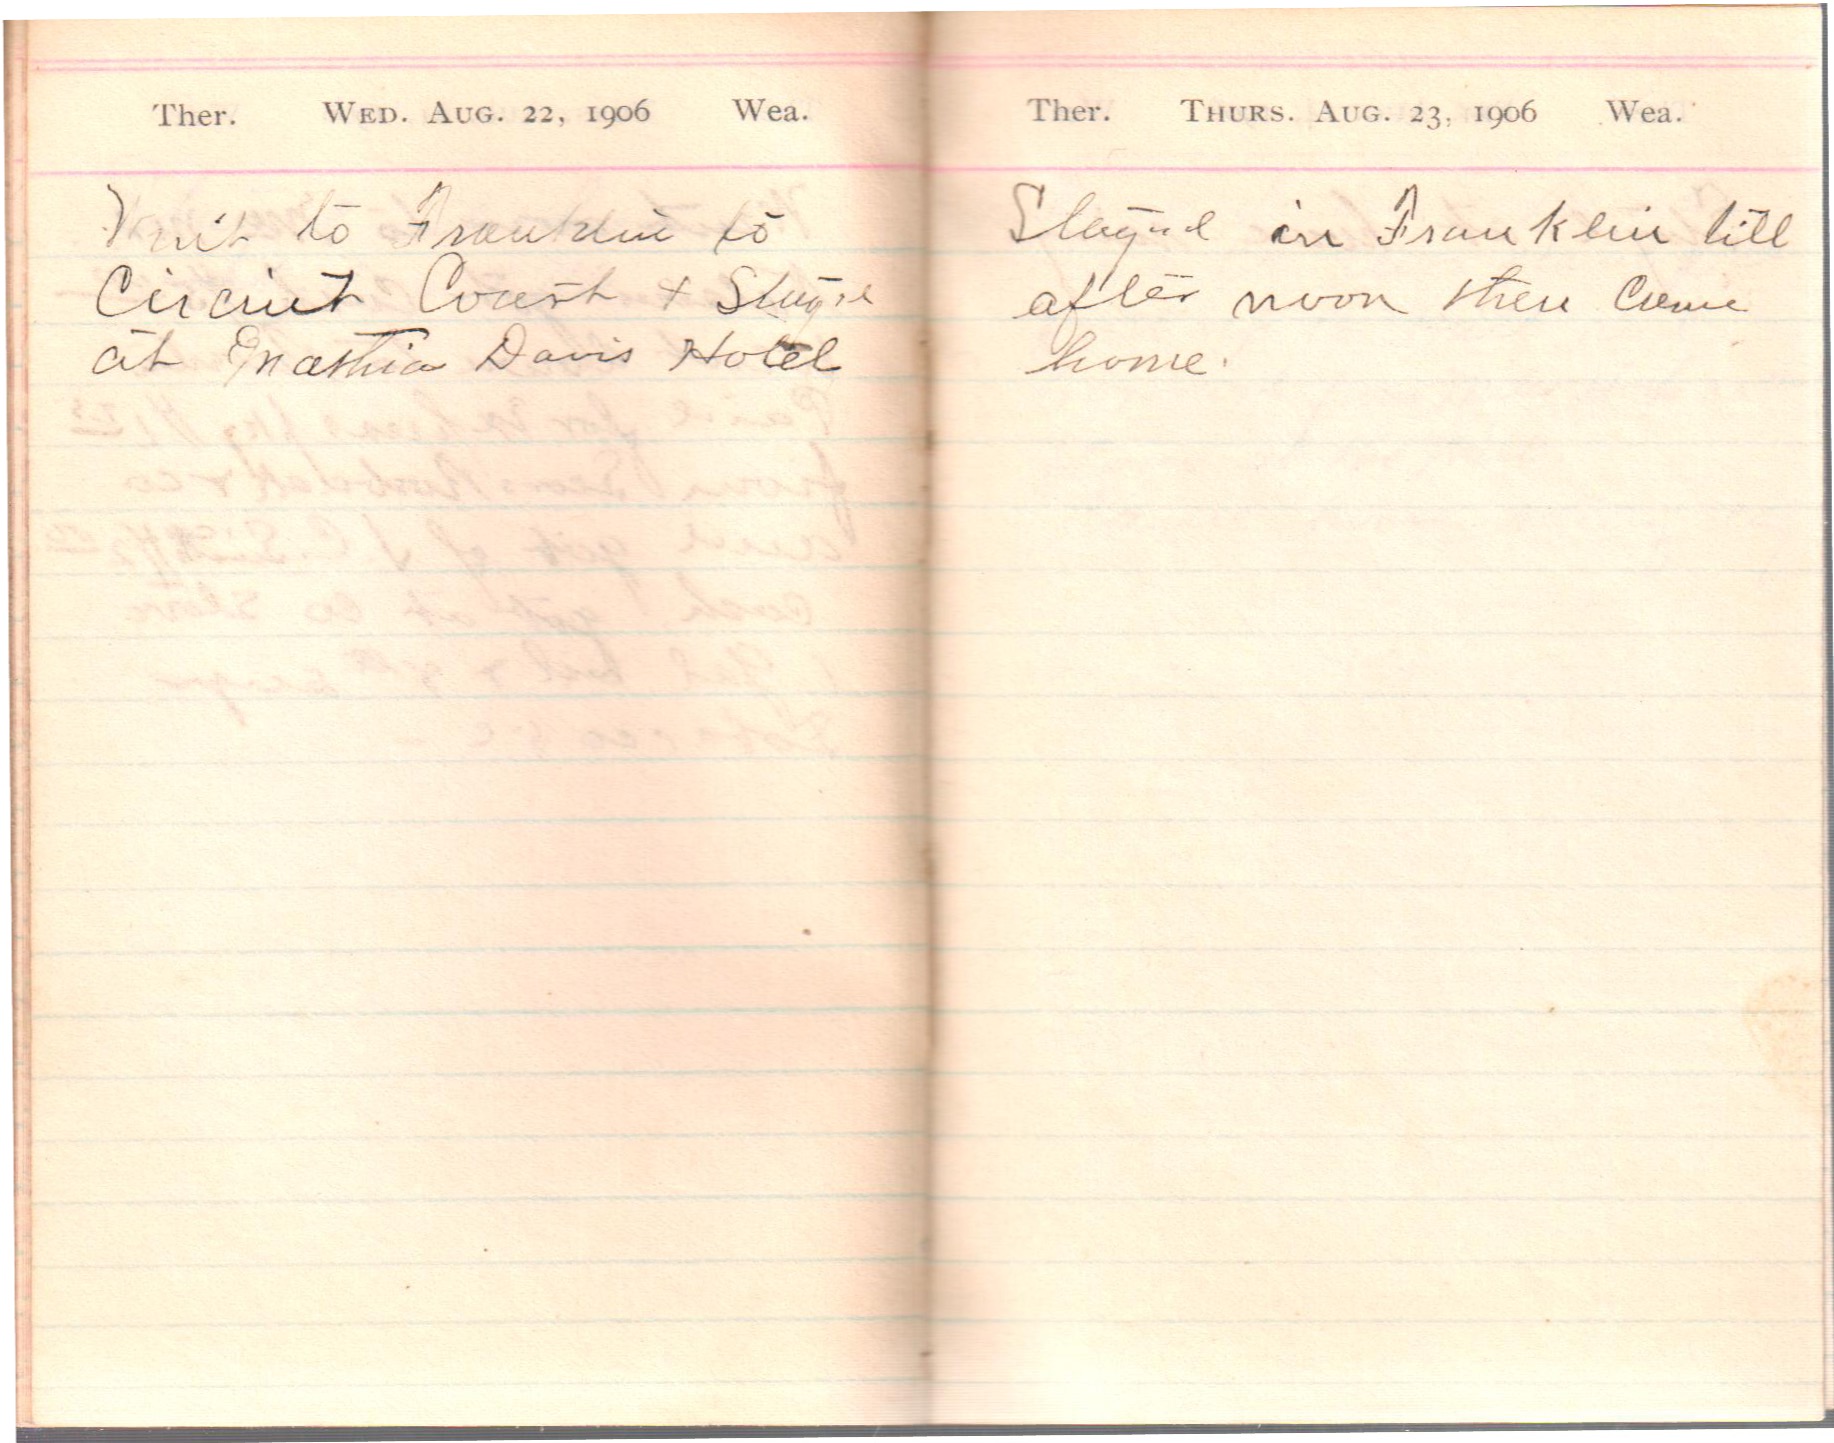 Ther. WED. AUG. 22, 1906 Wea.
Went to Franklin to
Circuit Court + Stayed
at Mathia Davis Hotel
Ther. THURS. AUG. 23, 1906 Wea.
Stayed in Franklin till
after noon then Come
home.